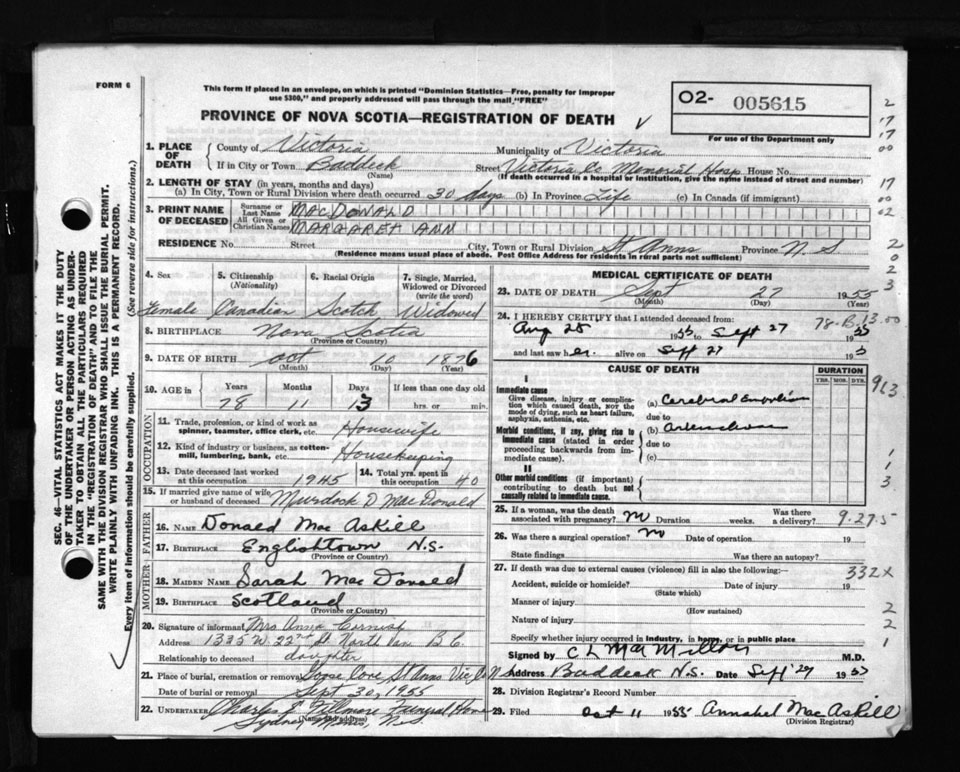 FORM 6
This form if placed in an envelope, on which is printed "Dominion Statistics—Free, penalty for improper
use $300," and properly addressed will pass through the mail "FREE"
PROVINCE OF NOVA SCOTIA—REGISTRATION OF DEATH
O2- 005615
For use of the Department only
1. PLACE OF DEATH
County of Victoria Municipality of Victoria
If in City or Town Baddeck Street Victoria Co Memorial Hosp House No.
(Name) (If death occurred in a hospital or institution, give the name instead of street and number)
2. LENGTH OF STAY (in years, months and days)
(a) In City, Town or Rural Division where death occurred 30 days (b) In Province Life (c) In Canada (if immigrant)
3. PRINT NAME OF DECEASED
Surname or Last Name MACDONALD
All Given or Christian Names MARGARET ANN
RESIDENCE No. Street City, Town or Rural Division St Anns Province N.S.
(Residence means usual place of abode. Post Office Address for residents in rural parts not sufficient)
4. Sex 5. Citizenship (Nationality) 6. Racial Origin 7. Single, Married, Widowed or Divorced (write the word)
Female Canadian Scotch Widowed
8. BIRTHPLACE Nova Scotia
(Province or Country)
9. DATE OF BIRTH Oct 10 1876
(Month) (Day) (Year)
10. AGE in Years Months Days If less than one day old
78 11 13 hrs. or min.
OCCUPATION
11. Trade, profession, or kind of work as spinner, teamster, office clerk, etc. Housewife
12. Kind of industry or business, as cotton-mill, lumbering, bank, etc. Housekeeping
13. Date deceased last worked at this occupation 1945
14. Total yrs. spent in this occupation 40
15. If married give name of wife or husband of deceased Murdock D MacDonald
FATHER
16. NAME Donald MacAskill
17. BIRTHPLACE Englishtown N.S.
(Province or Country)
MOTHER
18. MAIDEN NAME Sarah MacDonald
19. BIRTHPLACE Scotland
(Province or Country)
20. Signature of informant Mrs Anna Cornish
Address 1335 W. 22nd St North Van B.C.
Relationship to deceased daughter
21. Place of burial, cremation or removal Goose Cove St Anns Vic Co N.S
Date of burial or removal Sept 30, 1955
22. UNDERTAKER Charles J. Fillmore Funeral Home
(Name and address)
Sydney Mines, N.S.
MEDICAL CERTIFICATE OF DEATH
23. DATE OF DEATH Sept 27 1955
(Month) (Day) (Year)
24. I HEREBY CERTIFY that I attended deceased from:
Aug 28 1955 to Sept 27 1955
and last saw her alive on Sept 27 195
78-B.13.00
CAUSE OF DEATH DURATION
YRS. MOS. DYS.
I
Immediate cause
Give disease, injury or complication which caused death, not the mode of dying, such as heart failure, asphyxia, asthenia, etc.
(a) Cerebral Embolism
due to
Morbid conditions, if any, giving rise to immediate cause (stated in order proceeding backwards from immediate cause).
(b)
due to
(c)
II
Other morbid conditions (if important) contributing to death but not causally related to immediate cause.
913
25. If a woman, was the death associated with pregnancy? no Duration weeks. Was there a delivery?
9.27.5
26. Was there a surgical operation? no Date of operation 19
State findings Was there an autopsy?
27. If death was due to external causes (violence) fill in also the following:
332X
Accident, suicide or homicide? Date of injury 19
(State which)
Manner of injury
(How sustained)
Nature of injury
Specify whether injury occurred in industry, in home, or in public place
Signed by C L MacMillan M.D.
Address Baddeck N.S. Date Sept 29 1955
28. Division Registrar's Record Number
29. Filed Oct 11 1955 Annabel MacAskill
(Division Registrar)
SEC. 46—VITAL STATISTICS ACT MAKES IT THE DUTY
OF THE UNDERTAKER OR PERSON ACTING AS UNDERTAKER TO OBTAIN ALL THE PARTICULARS REQUIRED
IN THE "REGISTRATION OF DEATH" AND TO FILE THE
SAME WITH THE DIVISION REGISTRAR WHO SHALL ISSUE THE BURIAL PERMIT.
WRITE PLAINLY WITH UNFADING INK. THIS IS A PERMANENT RECORD.
Every item of information should be carefully supplied. (See reverse side for instructions.)